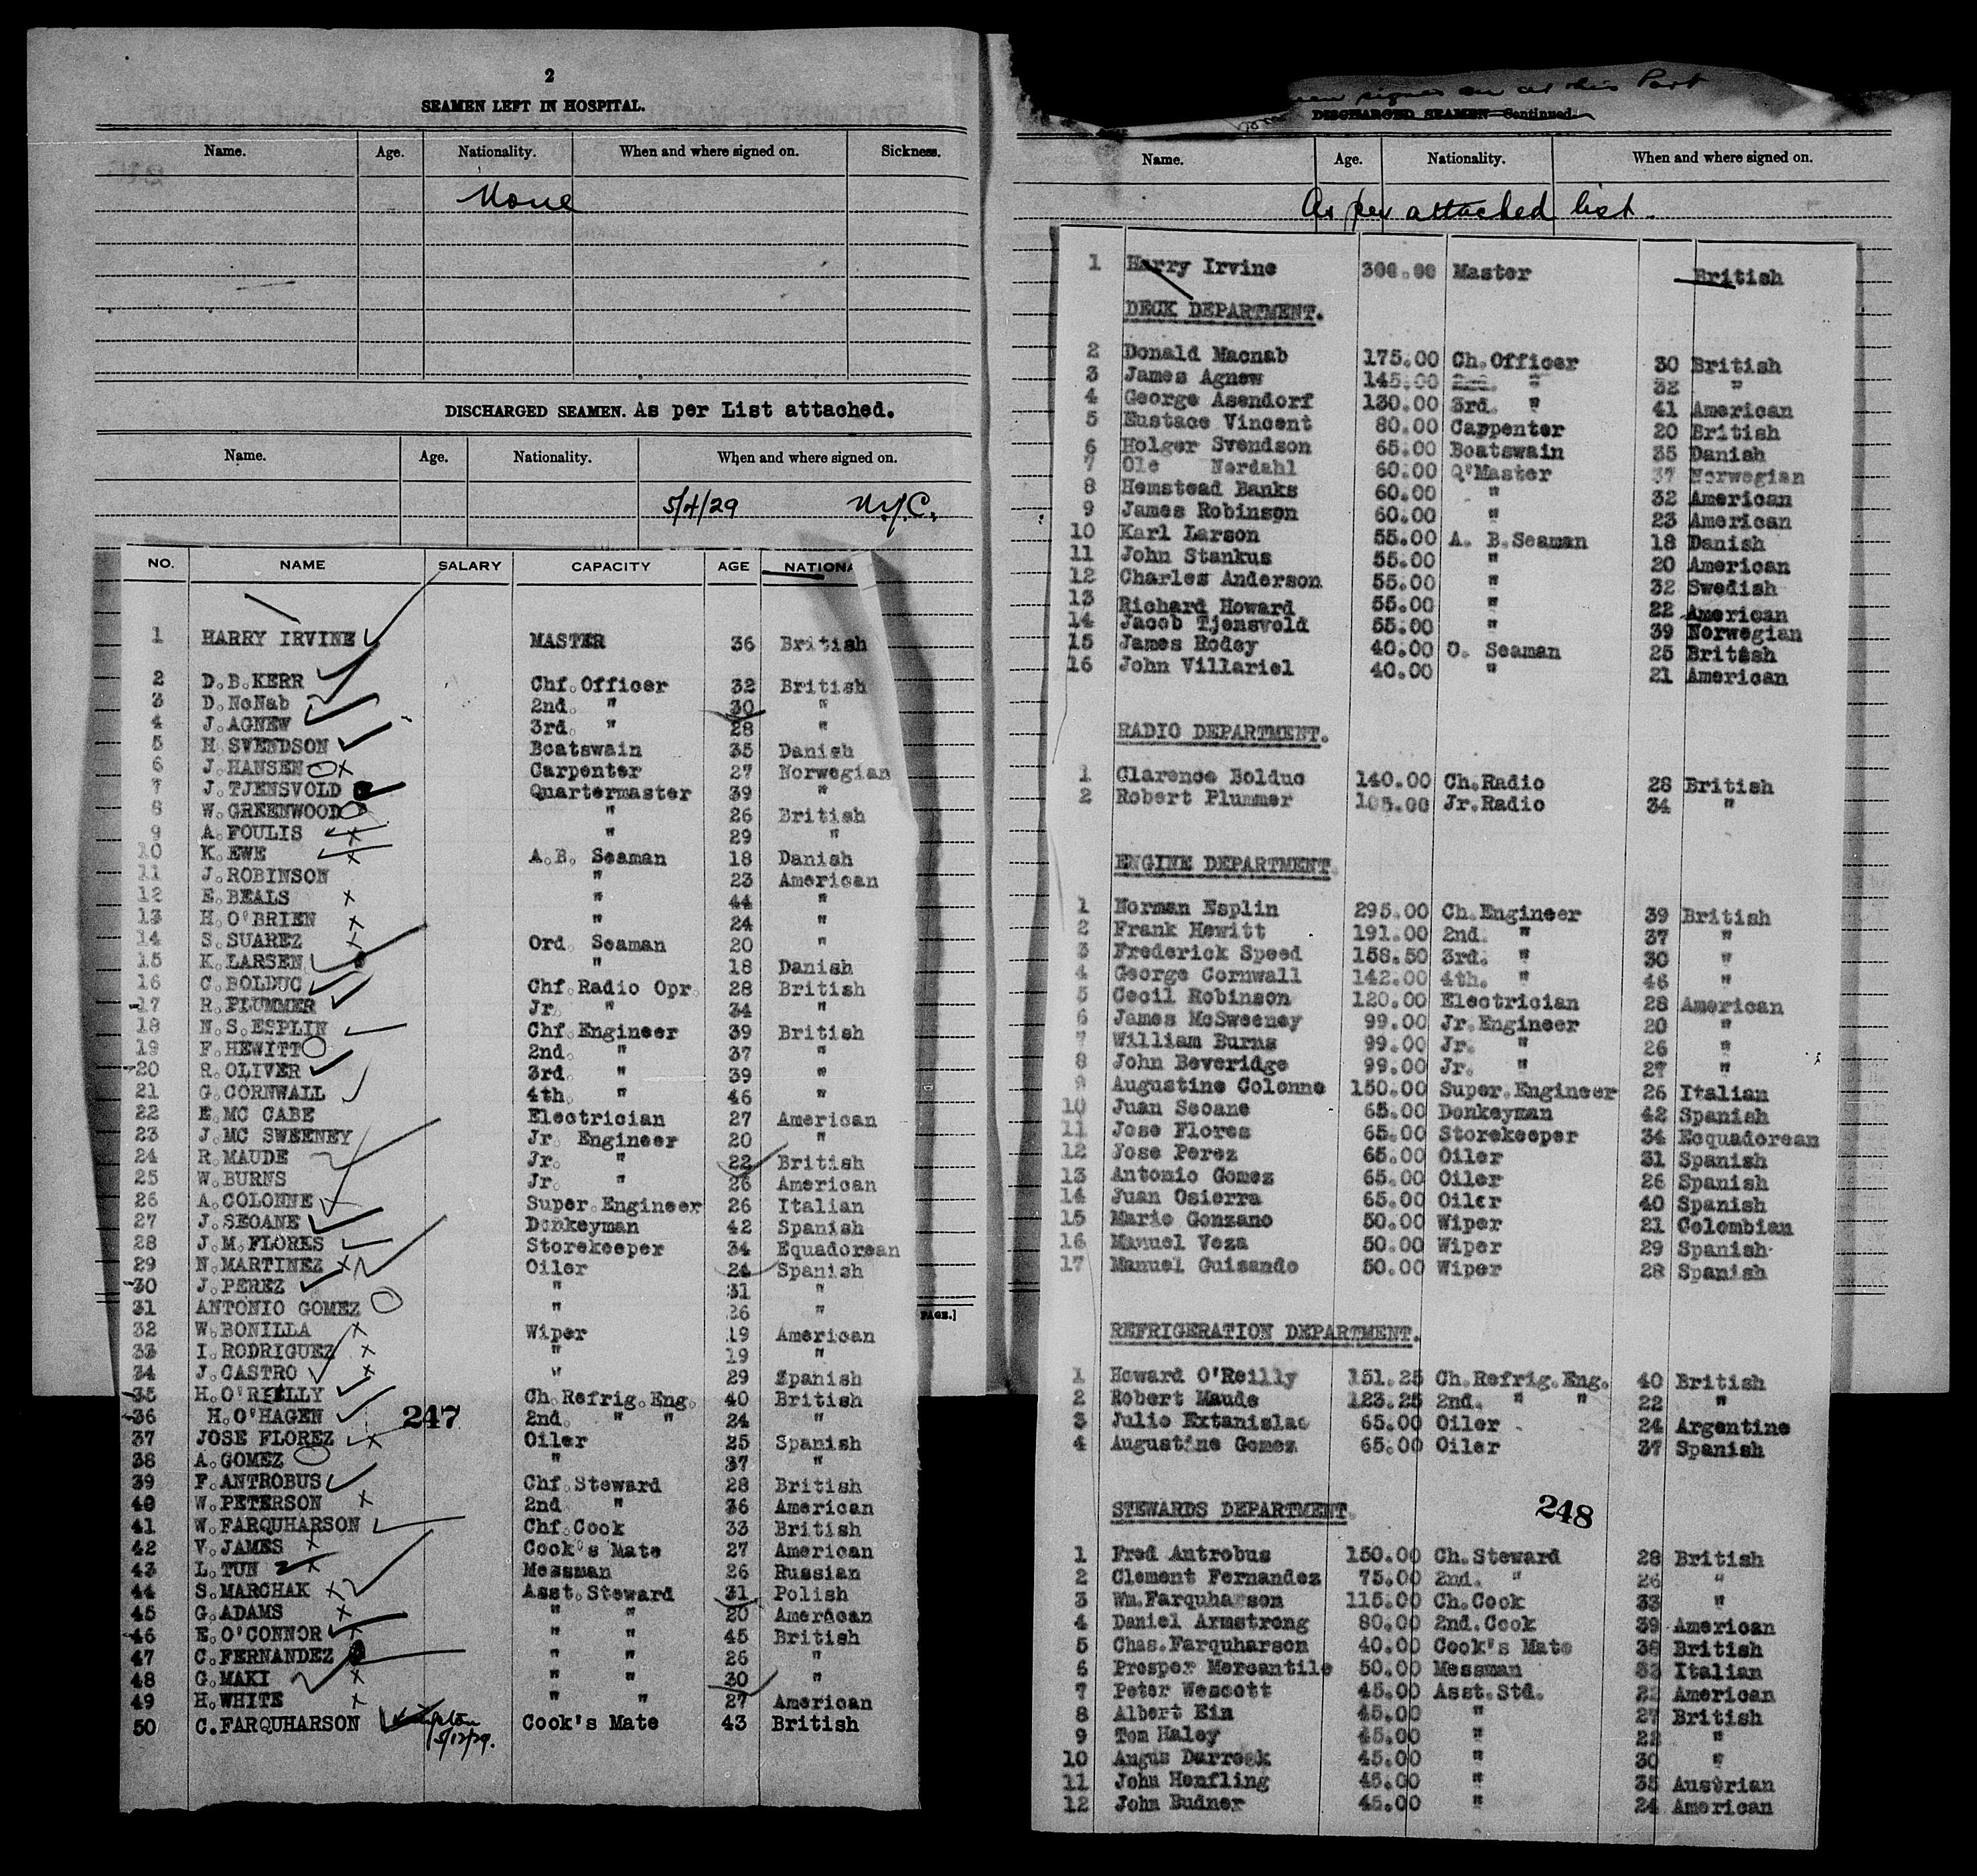 2
SEAMEN LEFT IN HOSPITAL.
Name. Age. Nationality. When and where signed on. Sickness.
None
DISCHARGED SEAMEN. As per List attached.
Name. Age. Nationality. When and where signed on.
5/4/29 N.Y.C.
NO. NAME SALARY CAPACITY AGE NATIONA
1 HARRY IRVINE MASTER 36 British
2 D.B.KERR Chf.Officer 32 British
3 D.McNab 2nd. " 30 "
4 J.AGNEW 3rd. " 28 "
5 H SVENDSON Boatswain 35 Danish
6 J.HANSEN Carpenter 27 Norwegian
7 J.TJENSVOLD Quartermaster 39 "
8 W.GREENWOOD " 26 British
9 A.FOULIS " 29 "
10 K.EWE A.B. Seaman 18 Danish
11 J.ROBINSON " 23 American
12 E.BEALS " 44 "
13 H.O'BRIEN " 24 "
14 S.SUAREZ Ord. Seaman 20 "
15 K.LARSEN " 18 Danish
16 C.BOLDUC Chf.Radio Opr. 28 British
17 R.PLUMMER Jr. " 34 "
18 N.S.ESPLIN Chf.Engineer 39 British
19 F.HEWITT 2nd. " 37 "
20 R.OLIVER 3rd. " 39 "
21 G.CORNWALL 4th. " 46 "
22 E.MC CABE Electrician 27 American
23 J.MC SWEENEY Jr. Engineer 20 "
24 R.MAUDE Jr. " 22 British
25 W.BURNS Jr. " 26 American
26 A.COLONNE Super.Engineer 26 Italian
27 J.SEOANE Donkeyman 42 Spanish
28 J.M.FLORES Storekeeper 34 Equadorean
29 N.MARTINEZ Oiler 24 Spanish
30 J.PEREZ " 31 "
31 ANTONIO GOMEZ " 26 "
32 W.BONILLA Wiper 19 American
33 I.RODRIGUEZ " 19 "
34 J.CASTRO " 29 Spanish
35 H.O'REILLY Ch.Refrig.Eng. 40 British
36 H.O'HAGEN 2nd. " " 24 "
247
37 JOSE FLOREZ Oiler 25 Spanish
38 A.GOMEZ " 37 "
39 F.ANTROBUS Chf.Steward 28 British
40 W.PETERSON 2nd " 36 American
41 W.FARQUHARSON Chf.Cook 33 British
42 V.JAMES Cook's Mate 27 American
43 L.TUN Messman 26 Russian
44 S.MARCHAK Asst.Steward 31 Polish
45 G.ADAMS " " 20 American
46 E.O'CONNOR " " 45 British
47 C.FERNANDEZ " " 26 "
48 G.MAKI " " 30 "
49 H.WHITE " " 27 American
50 C.FARQUHARSON 5/12/29. Cook's Mate 43 British
PAGE.]
signed on at this Port
DISCHARGED SEAMEN Continued.
Name. Age. Nationality. When and where signed on.
As per attached list.
1 Harry Irvine 300.00 Master British
DECK DEPARTMENT.
2 Donald Macnab 175.00 Ch.Officer 30 British
3 James Agnew 145.00 2nd. " 32 "
4 George Asendorf 130.00 3rd. " 41 American
5 Eustace Vincent 80.00 Carpenter 20 British
6 Holger Svendson 65.00 Boatswain 35 Danish
7 Ole Nordahl 60.00 Q'Master 37 Norwegian
8 Hemstead Banks 60.00 " 32 American
9 James Robinson 60.00 " 23 American
10 Karl Larson 55.00 A. B.Seaman 18 Danish
11 John Stankus 55.00 " 20 American
12 Charles Anderson 55.00 " 32 Swedish
13 Richard Howard 55.00 " 22 American
14 Jacob Tjensvold 55.00 " 39 Norwegian
15 James Rodey 40.00 O. Seaman 25 British
16 John Villariel 40.00 " 21 American
RADIO DEPARTMENT.
1 Clarence Bolduc 140.00 Ch.Radio 28 British
2 Robert Plummer 105.00 Jr.Radio 34 "
ENGINE DEPARTMENT.
1 Norman Esplin 295.00 Ch.Engineer 39 British
2 Frank Hewitt 191.00 2nd. " 37 "
3 Frederick Speed 158.50 3rd. " 30 "
4 George Cornwall 142.00 4th. " 46 "
5 Cecil Robinson 120.00 Electrician 28 American
6 James McSweeney 99.00 Jr.Engineer 20 "
7 William Burns 99.00 Jr. " 26 "
8 John Beveridge 99.00 Jr. " 27 "
9 Augustine Colonne 150.00 Super.Engineer 26 Italian
10 Juan Seoane 65.00 Donkeyman 42 Spanish
11 Jose Flores 65.00 Storekeeper 34 Ecquadorean
12 Jose Perez 65.00 Oiler 31 Spanish
13 Antonio Gomez 65.00 Oiler 26 Spanish
14 Juan Osierra 65.00 Oiler 40 Spanish
15 Mario Gonzano 50.00 Wiper 21 Colombian
16 Manuel Veza 50.00 Wiper 29 Spanish
17 Manuel Guisando 50.00 Wiper 28 Spanish
REFRIGERATION DEPARTMENT.
1 Howard O'Reilly 151.25 Ch.Refrig.Eng. 40 British
2 Robert Maude 123.25 2nd. " " 22 "
3 Julio Extanislao 65.00 Oiler 24 Argentine
4 Augustine Gomez 65.00 Oiler 37 Spanish
STEWARDS DEPARTMENT.
248
1 Fred Antrobus 150.00 Ch.Steward 28 British
2 Clement Fernandez 75.00 2nd. " 26 "
3 Wm.Farquharson 115.00 Ch.Cook 33 "
4 Daniel Armstrong 80.00 2nd.Cook 39 American
5 Chas.Farquharson 40.00 Cook's Mate British
6 Prosper Mercantile 50.00 Messman Italian
7 Peter Wescott 45.00 Asst.Std. American
8 Albert Ein 45.00 " 27 British
9 Tom Haley 45.00 " 22 "
10 Angus Darrock 45.00 " 30 "
11 John Henfling 45.00 " 35 Austrian
12 John Budner 45.00 " 24 American